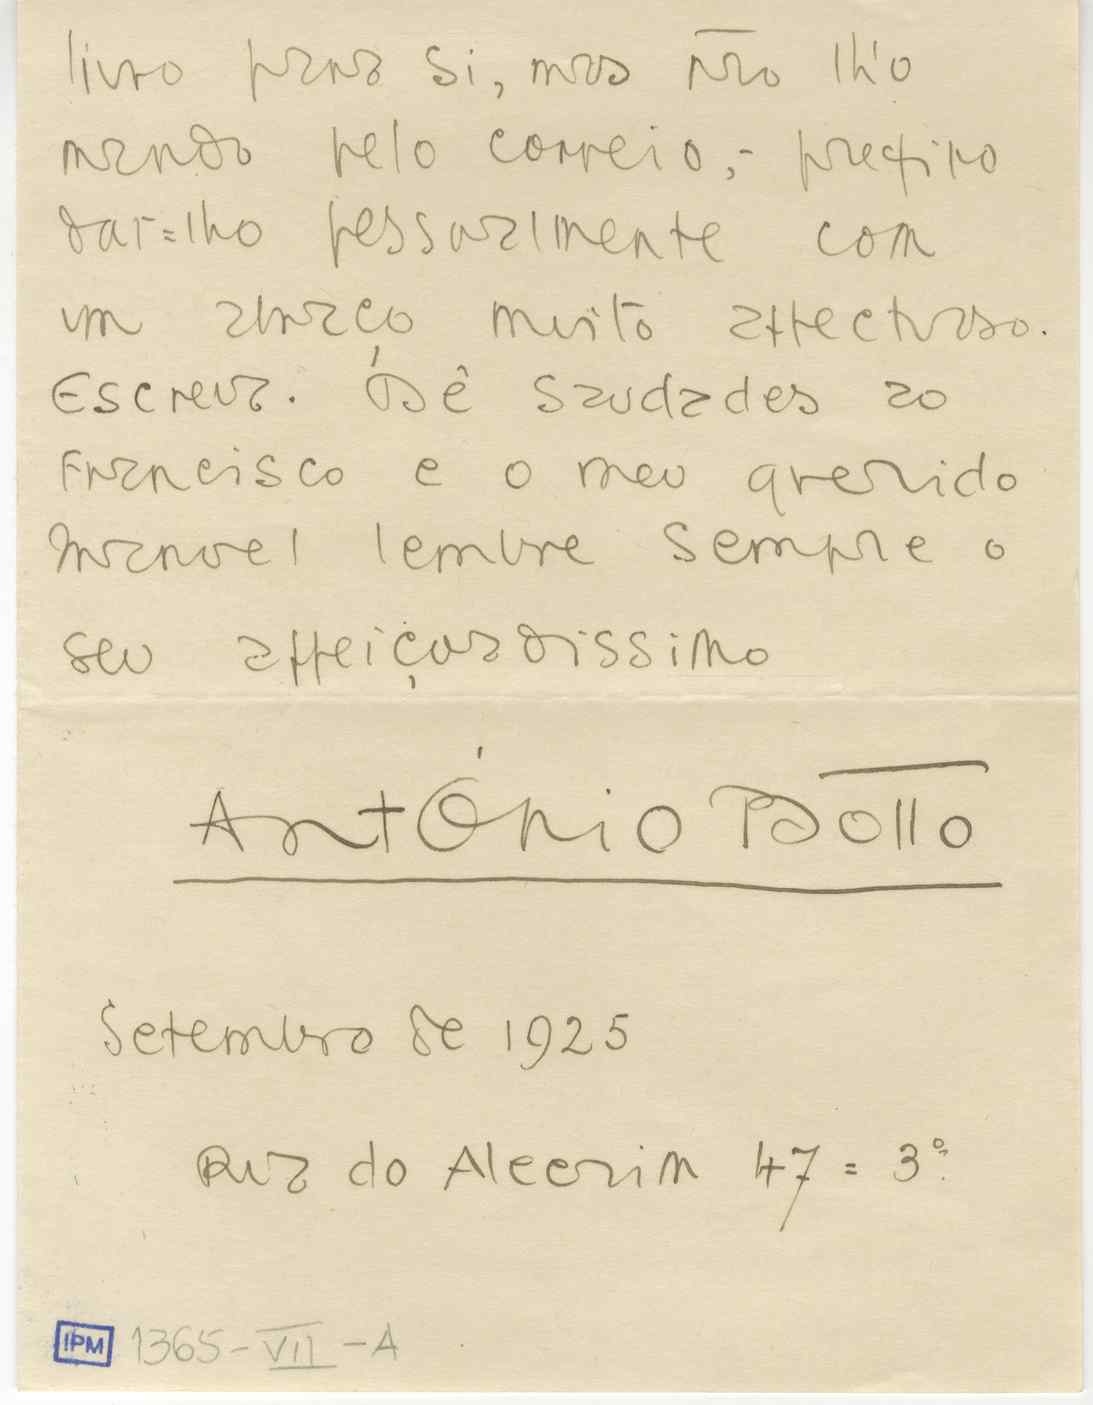 livro para si, mas não lh'o
mando pelo correio; - prefiro
dar=lho pessoalmente com
um abraço muito affectuoso.
Escreva. Dê saudades ao
Francisco e o meu querido
Manoel lembre sempre o
seu affeiçoadissimo
António Bôtto
Setembro de 1925
Rua do Alecrim 47 = 3º
IPM 1365-VII-A